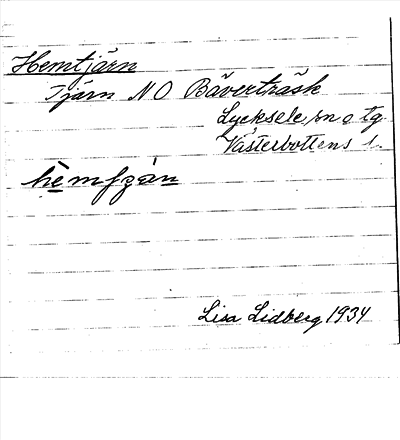 Hemtjärn
Tjärn NO Bäverträsk
Lycksele sn o tg
Västerbottens l.
Lisa Lidberg 1934